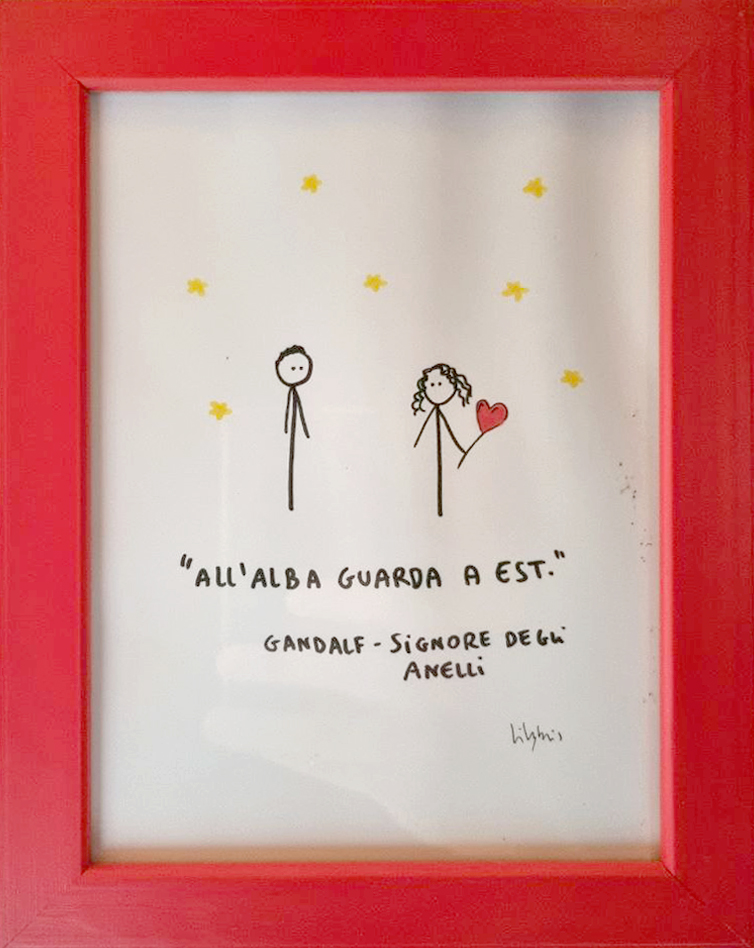 "ALL'ALBA GUARDA A EST."
GANDALF - SiGNORE DEGLi
ANELLi